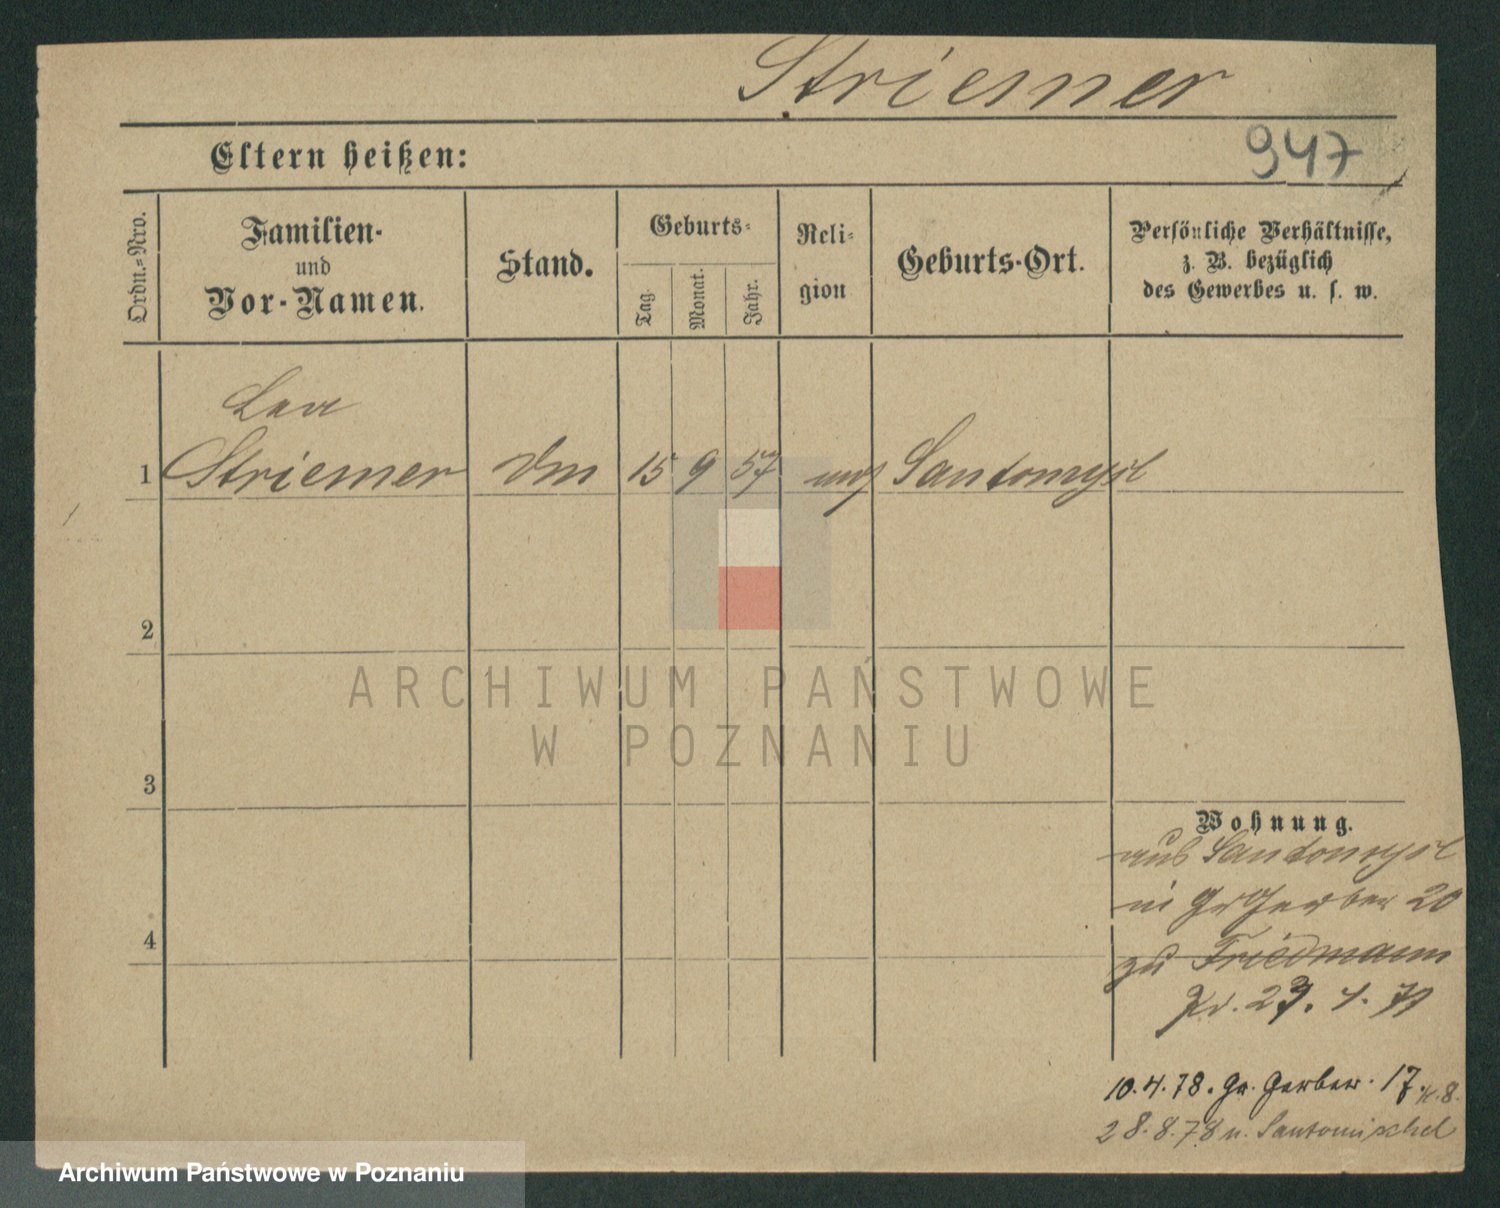 Striemer
Eltern heißen:
947
Ordn.-Nro.
Familien-
und
Vor-Namen.
Stand.
Geburts-
Tag.
Monat.
Jahr.
Reli-
gion
Geburts-Ort.
Persönliche Verhältnisse,
z. B. bezüglich
des Gewerbes u. s. w.
Lea
1 Striemer 15 9 57 mos Santomysl
2
ARCHIWUM PAŃSTWOWE
W POZNANIU
3
Wohnung.
aus Santomysl
in Gr Gerber 20
4
zu Friedmann
10.4.78. Gr. Gerber. 17.
28.8.78 n. Santomischel
Archiwum Państwowe w Poznaniu